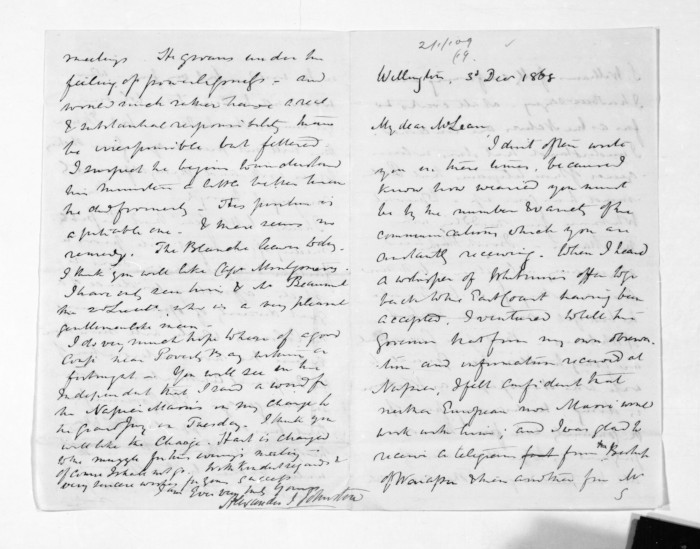 Wellington, 5th Decr 1868
My dear McLean
I don't often write
you in these times, because I
know how wearied you must
be by the number & variety of the
communications which you are
constantly receiving. When I heard
a whisper of offer to go
back to the East Coast having been
accepted. I ventured to tell the
Governor that from my own observa-
tion and information received at
Napier, I felt confident that
neither European nor Maori would
work with him; and I was glad to
receive a telegram from the Bishop
of Waiapu & then another from Mr
S
meetings. He groans under the
feeling of powerlessness - and
would much rather have a real
& substantial responsibility than
be irresponsible but fettered
I suspect he begins to understand
his Ministers a little better than
he did formerly - His position is
a pitiable one - & there seems no
remedy. The Blanche leaves today.
I think you will like Capt Montgomerie.
I have only seen him & Mr Beaumont
the 2d Lieut, who is a very pleasant
gentlemanlike man -
I do very much hope to hear of a good
near Poverty Bay within a
fortnight - You will see in the
Independent that I said a word for
the Napier Maoris in my charge to
the Grand Jury on Tuesday. I think you
will like the Charge. Hart is changed
to the for this evening's meeting -
of course I shall not go. With kindest regards &
very sincere wishes for your success
I am Ever very truly yours
Alexander J Johnston